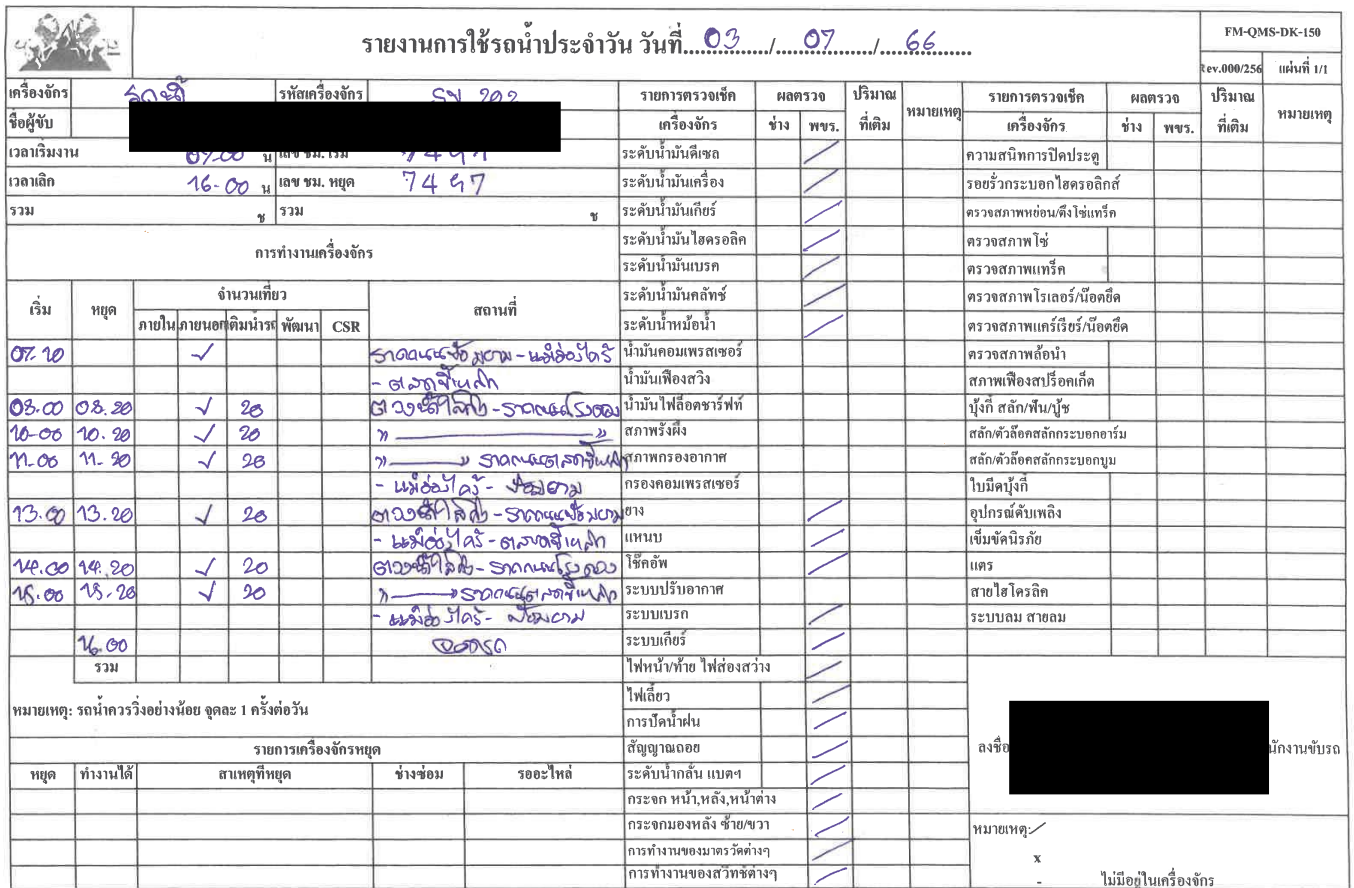 รายงานการใช้รถน้ำประจำวัน วันที่ 03 / 07 / 66
FM-QMS-DK-150
Rev.000/256 แผ่นที่ 1/1
เครื่องจักร รถน้ำ รหัสเครื่องจักร 202
ชื่อผู้ขับ
เวลาเริ่มงาน 07.00 น เลข ชม. เริ่ม
เวลาเลิก 16-00 น เลข ชม. หยุด 7497
รวม ช รวม ช
การทำงานเครื่องจักร
เริ่ม หยุด จำนวนเที่ยว สถานที่
ภายใน ภายนอก เติมน้ำรถ พัฒนา CSR
07.20 ✓ ราดถนนป้อมยาม - แม่ฮ่องไคร้
- ตลาดขี้เหล็ก
08.00 08.20 ✓ 20 - ราดถนนโรงดอง
10-00 10.20 ✓ 20 " "
11.00 11.20 ✓ 20 " " ราดถนนตลาดขี้เหล็ก
- แม่ฮ่องไคร้ - ป้อมยาม
13.00 13.20 ✓ 20 - ราดถนนป้อมยาม
- แม่ฮ่องไคร้ - ตลาดขี้เหล็ก
14.00 14.20 ✓ 20 - ราดถนนโรงดอง
15.00 15.20 ✓ 20 " " ราดถนนตลาดขี้เหล็ก
- แม่ฮ่องไคร้ - ป้อมยาม
16.00 จอดรถ
รวม
หมายเหตุ: รถน้ำควรวิ่งอย่างน้อย จุดละ 1 ครั้งต่อวัน
รายการเครื่องจักรหยุด
หยุด ทำงานได้ สาเหตุที่หยุด ช่างซ่อม รออะไหล่
รายการตรวจเช็ค ผลตรวจ ปริมาณ หมายเหตุ
เครื่องจักร ช่าง พขร. ที่เติม
ระดับน้ำมันดีเซล /
ระดับน้ำมันเครื่อง /
ระดับน้ำมันเกียร์ /
ระดับน้ำมันไฮดรอลิค /
ระดับน้ำมันเบรค /
ระดับน้ำมันคลัทช์ /
ระดับน้ำหม้อน้ำ /
น้ำมันคอมเพรสเซอร์
น้ำมันเฟืองสวิง
น้ำมันไฟล็อตชาร์ฟท์
สภาพรังผึ้ง
สภาพกรองอากาศ
กรองคอมเพรสเซอร์
ยาง /
แหนบ /
โช๊คอัพ /
ระบบปรับอากาศ
ระบบเบรก /
ระบบเกียร์ /
ไฟหน้า/ท้าย ไฟส่องสว่าง /
ไฟเลี้ยว /
การปัดน้ำฝน /
สัญญาณถอย /
ระดับน้ำกลั่น แบตฯ /
กระจก หน้า,หลัง,หน้าต่าง /
กระจกมองหลัง ซ้าย/ขวา /
การทำงานของมาตรวัดต่างๆ /
การทำงานของสวิทช์ต่างๆ /
รายการตรวจเช็ค ผลตรวจ ปริมาณ หมายเหตุ
เครื่องจักร ช่าง พขร. ที่เติม
ความสนิทการปิดประตู
รอยรั่วกระบอกไฮดรอลิกส์
ตรวจสภาพหย่อน/ตึงโซ่แทร็ค
ตรวจสภาพโซ่
ตรวจสภาพแทร็ค
ตรวจสภาพโรเลอร์/น๊อตยึด
ตรวจสภาพแคร์เรียร์/น๊อตยึด
ตรวจสภาพล้อนำ
สภาพเฟืองสปร็อคเก็ต
บุ้งกี๋ สลัก/ฟัน/บู้ช
สลัก/ตัวล๊อคสลักกระบอกอาร์ม
สลัก/ตัวล๊อคสลักกระบอกบูม
ใบมีดบุ้งกี๋
อุปกรณ์ดับเพลิง
เข็มขัดนิรภัย
แตร
สายไฮโดรลิค
ระบบลม สายลม
ลงชื่อ นักงานขับรถ
หมายเหตุ: /
x
- ไม่มีอยู่ในเครื่องจักร